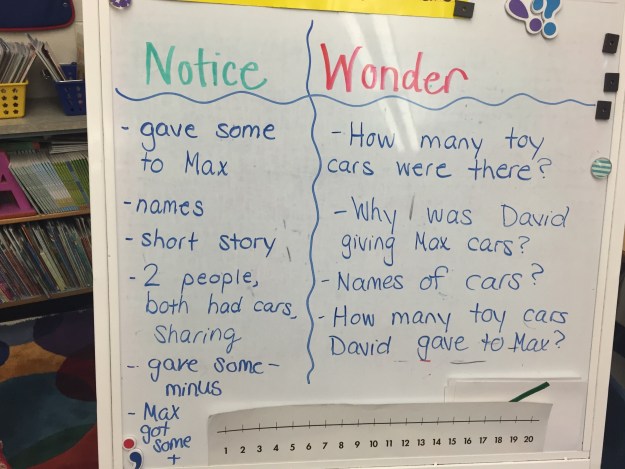 Notice
- gave some
to Max
- names
- short story
- 2 people,
both had cars,
sharing
- gave some -
minus
- Max
got
some
+
Wonder
- How many toy
cars were there?
- Why was David
giving Max cars?
- Names of cars?
- How many toy cars
David gave to Max?
1 2 3 4 5 6 7 8 9 10 11 12 13 14 15 16 17 18 19 20